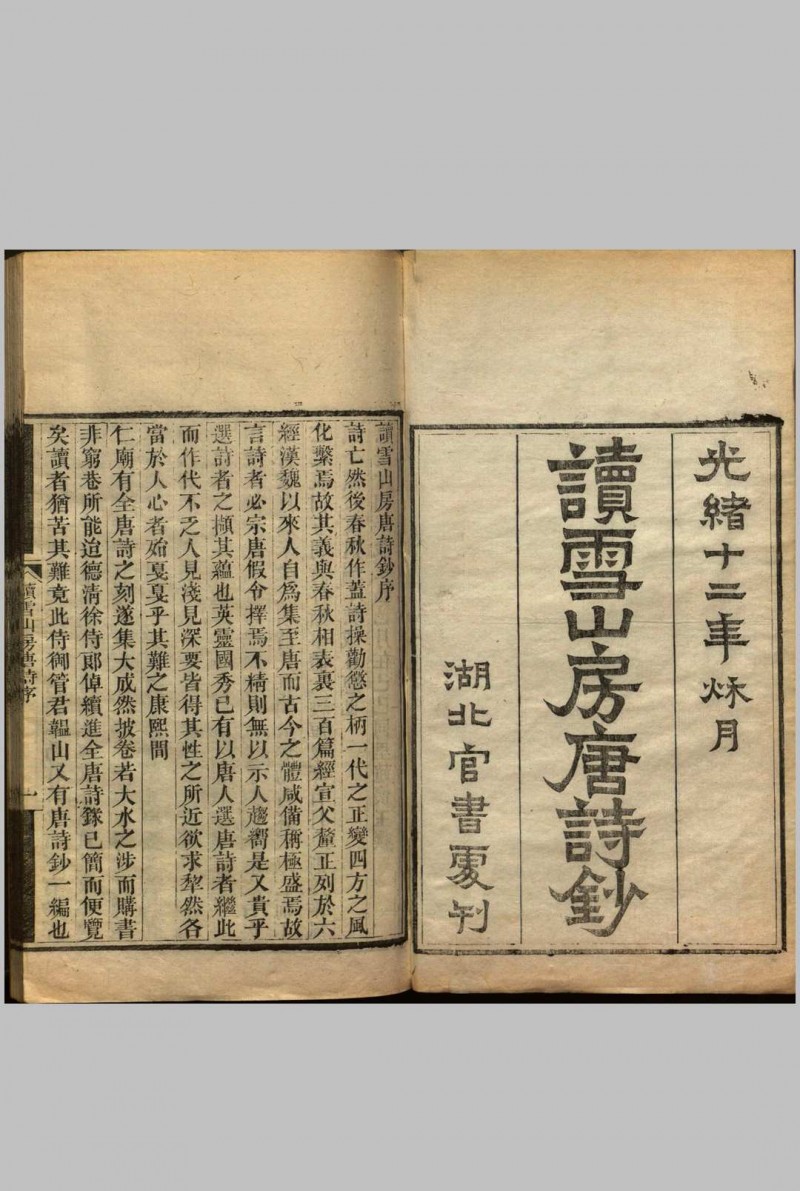 光緒十二年秌月
讀雪山房唐詩鈔
湖北官書處刊
讀雪山房唐詩鈔序
詩亡然後春秋作蓋詩操勸懲之柄一代之正變四方之風
化繫焉故其義與春秋相表裏三百篇經宣父釐正列於六
經漢魏以來人自爲集至唐而古今之體咸備稱極盛焉故
言詩者必宗唐假令擇焉不精則無以示人趨嚮是又貴乎
選詩者之擷其蘊也英靈國秀已有以唐人選唐詩者繼此
而作代不乏人見淺見深要皆得其性之所近欲求犁然各
當於人心者殆戛戛乎其難之康熙間
仁廟有全唐詩之刻遂集大成然披卷若大水之涉而購書
非窮巷所能迨德清徐侍郎倬續進全唐詩錄已簡而便覽
矣讀者猶苦其難竟此侍御管君韞山又有唐詩鈔一編也
讀雪山房唐詩序
一